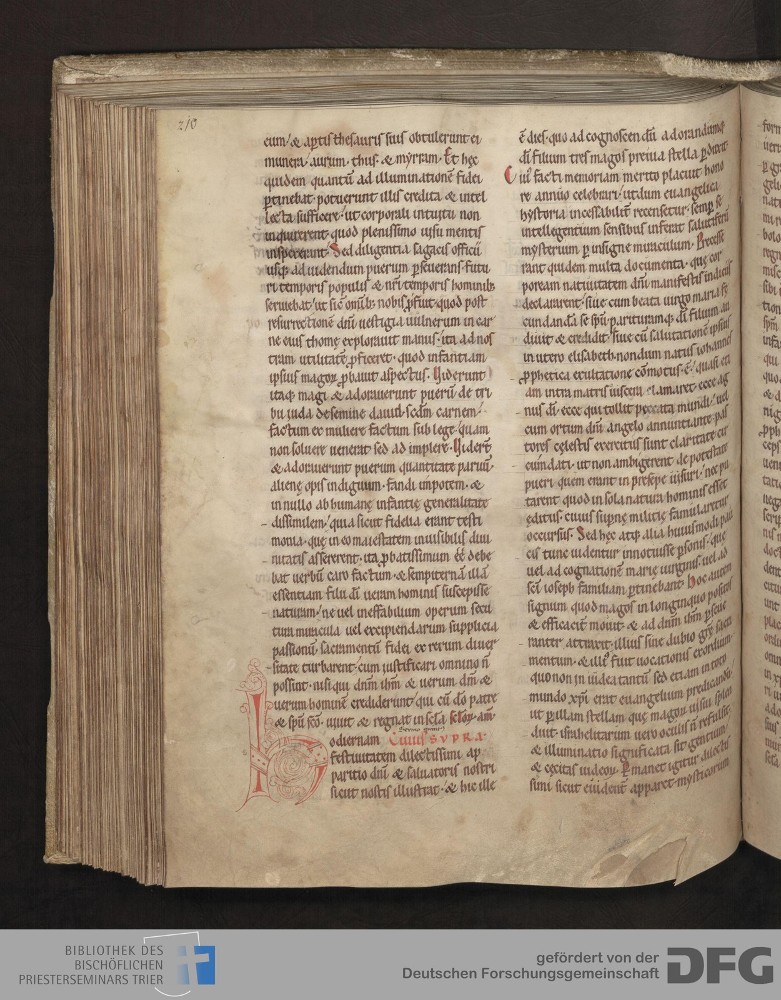 210
eum / & ap̱tis thesauris suis obtulerunt ei
munera / aurum · thus · & myrram · Et hęc
quidem quantū ad illuminationē fidei
ꝑtinebat · potuerunt illis credita & intel
lecta sufficere · ut corporali intuitu non
inquirerent · quod plenissimo uisu mentis
inspexerant · Sed diligentia sagacis officii
usq; ad uidendum puerum ꝑseuerans · futu
ri temporis populis & nr̄i temporis hominib;
seruiebat / ut sic̄ omīb; nobis ꝓfuit · quod post
resurrectionē dn̄i uestigia uulnerum in car
ne eius thomę explorauit manus · ita ad nos
tram utilitatē ꝓficeret · quod infantiam
ipsius magoꝝ ꝓbauit aspectus · Uiderunt
itaq; magi & adorauerunt puerū de tri
bu iuda de semine dauid scd̄m carnem /
factum ex muliere factum sub lege · quam
non soluere uenerat sed ad implere · Uider̄t
& adorauerunt puerum quantitate paruū ·
alienę opis indiguum · fandi inpotem · &
in nullo ab humanę infantię generalitate
dissimilem / quia sicut fidelia erant testi
monia · quę in eo maiestatem inuisibilis diui
nitatis assererent · ita ꝓbatissimum eē debe
bat uerbū caro factum · & sempiternā illā
essentiam filii dī ueram hominis suscepisse
naturam / ne uel ineffabilium operum secu
tura miracula uel excipiendarum supplicia
passionū · sacramentū fidei ex rerum diuer
sitate turbarent · cum iustificari omnino n̄
possint · nisi qui dn̄m ih̄m & uerum dm̄ &
uerum hominē crediderunt / qui cū dō patre
& spū scō · uiuit & regnat in scl̄a scl̄oꝝ · am̄
hodiernam CUIUS SVPRA ·
festiuitatem dilectissimi ap
paritio dn̄i & saluatoris nostri
sicut nostis illustrat · & hic ille
ē dies · quo ad cognoscendū adorandumq;
dī filium tres magos preuia stella ꝑduxit
Cui' facti memoriam merito placuit hono
re annuo celebrari / ut dum euangelica
hystoria incessabilit̄ recensetur · semꝑ se
intellegentium sensibus inferat salutiferū
mysterium ꝑ insigne miraculum · Precesse
rant quidem multa documenta · quę cor
poream natiuitatem dn̄i manifestis indiciis
declararent · siue cum beata uirgo maria fę
cundandā se spū parituramq; dī filium au
diuit & credidit · siue cū salutationē ipsius
in utero elisabeth nondum natus iohannes
ꝓphetica exultatione cōmotus · ē / quasi eti
am intra matris uiscera clamaret · ecce ag
nus dī ecce qui tollit peccata mundi / uel
cum ortum dn̄i angelo annuntiante pas
tores cęlestis exercitus sunt claritate cir
cūmdati · ut non ambigerent de potestate
pueri quem erant in presepe uisuri / nec pu
tarent quod in sola natura hominis esset
editus · cuius supernę militię famularetur
occursus · Sed hęc atq; alia huius modi pau
cis tunc uidentur innotuisse ꝑsonis · quę
uel ad cognationē marię uirginis · uel ad
scī ioseph familiam ꝑtinebant · Hoc autem
signum quod magos in longinquo positos
& efficacit̄ mouit · & ad dn̄m ih̄m ꝑseue
ranter attraxit · illius sine dubio grę̄ sacra
mentum · & illi' fuit uocationis exordium ·
quo non in iudea tantū sed etiam in toto
mundo xp̄i erat euangelium predicandū ·
ut ꝑ illam stellam quę magoꝝ uisui splen
duit · israhelitarum uero oculis n̄ refulsit ·
& illuminatio significata sit gentium ·
& cęcitas iudeoꝝ · Permanet igitur dilectis
simi sicut euident̄ apparet · mysticorum
BIBLIOTHEK DES
BISCHÖFLICHEN
PRIESTERSEMINARS TRIER
gefördert von der
Deutschen Forschungsgemeinschaft
DFG